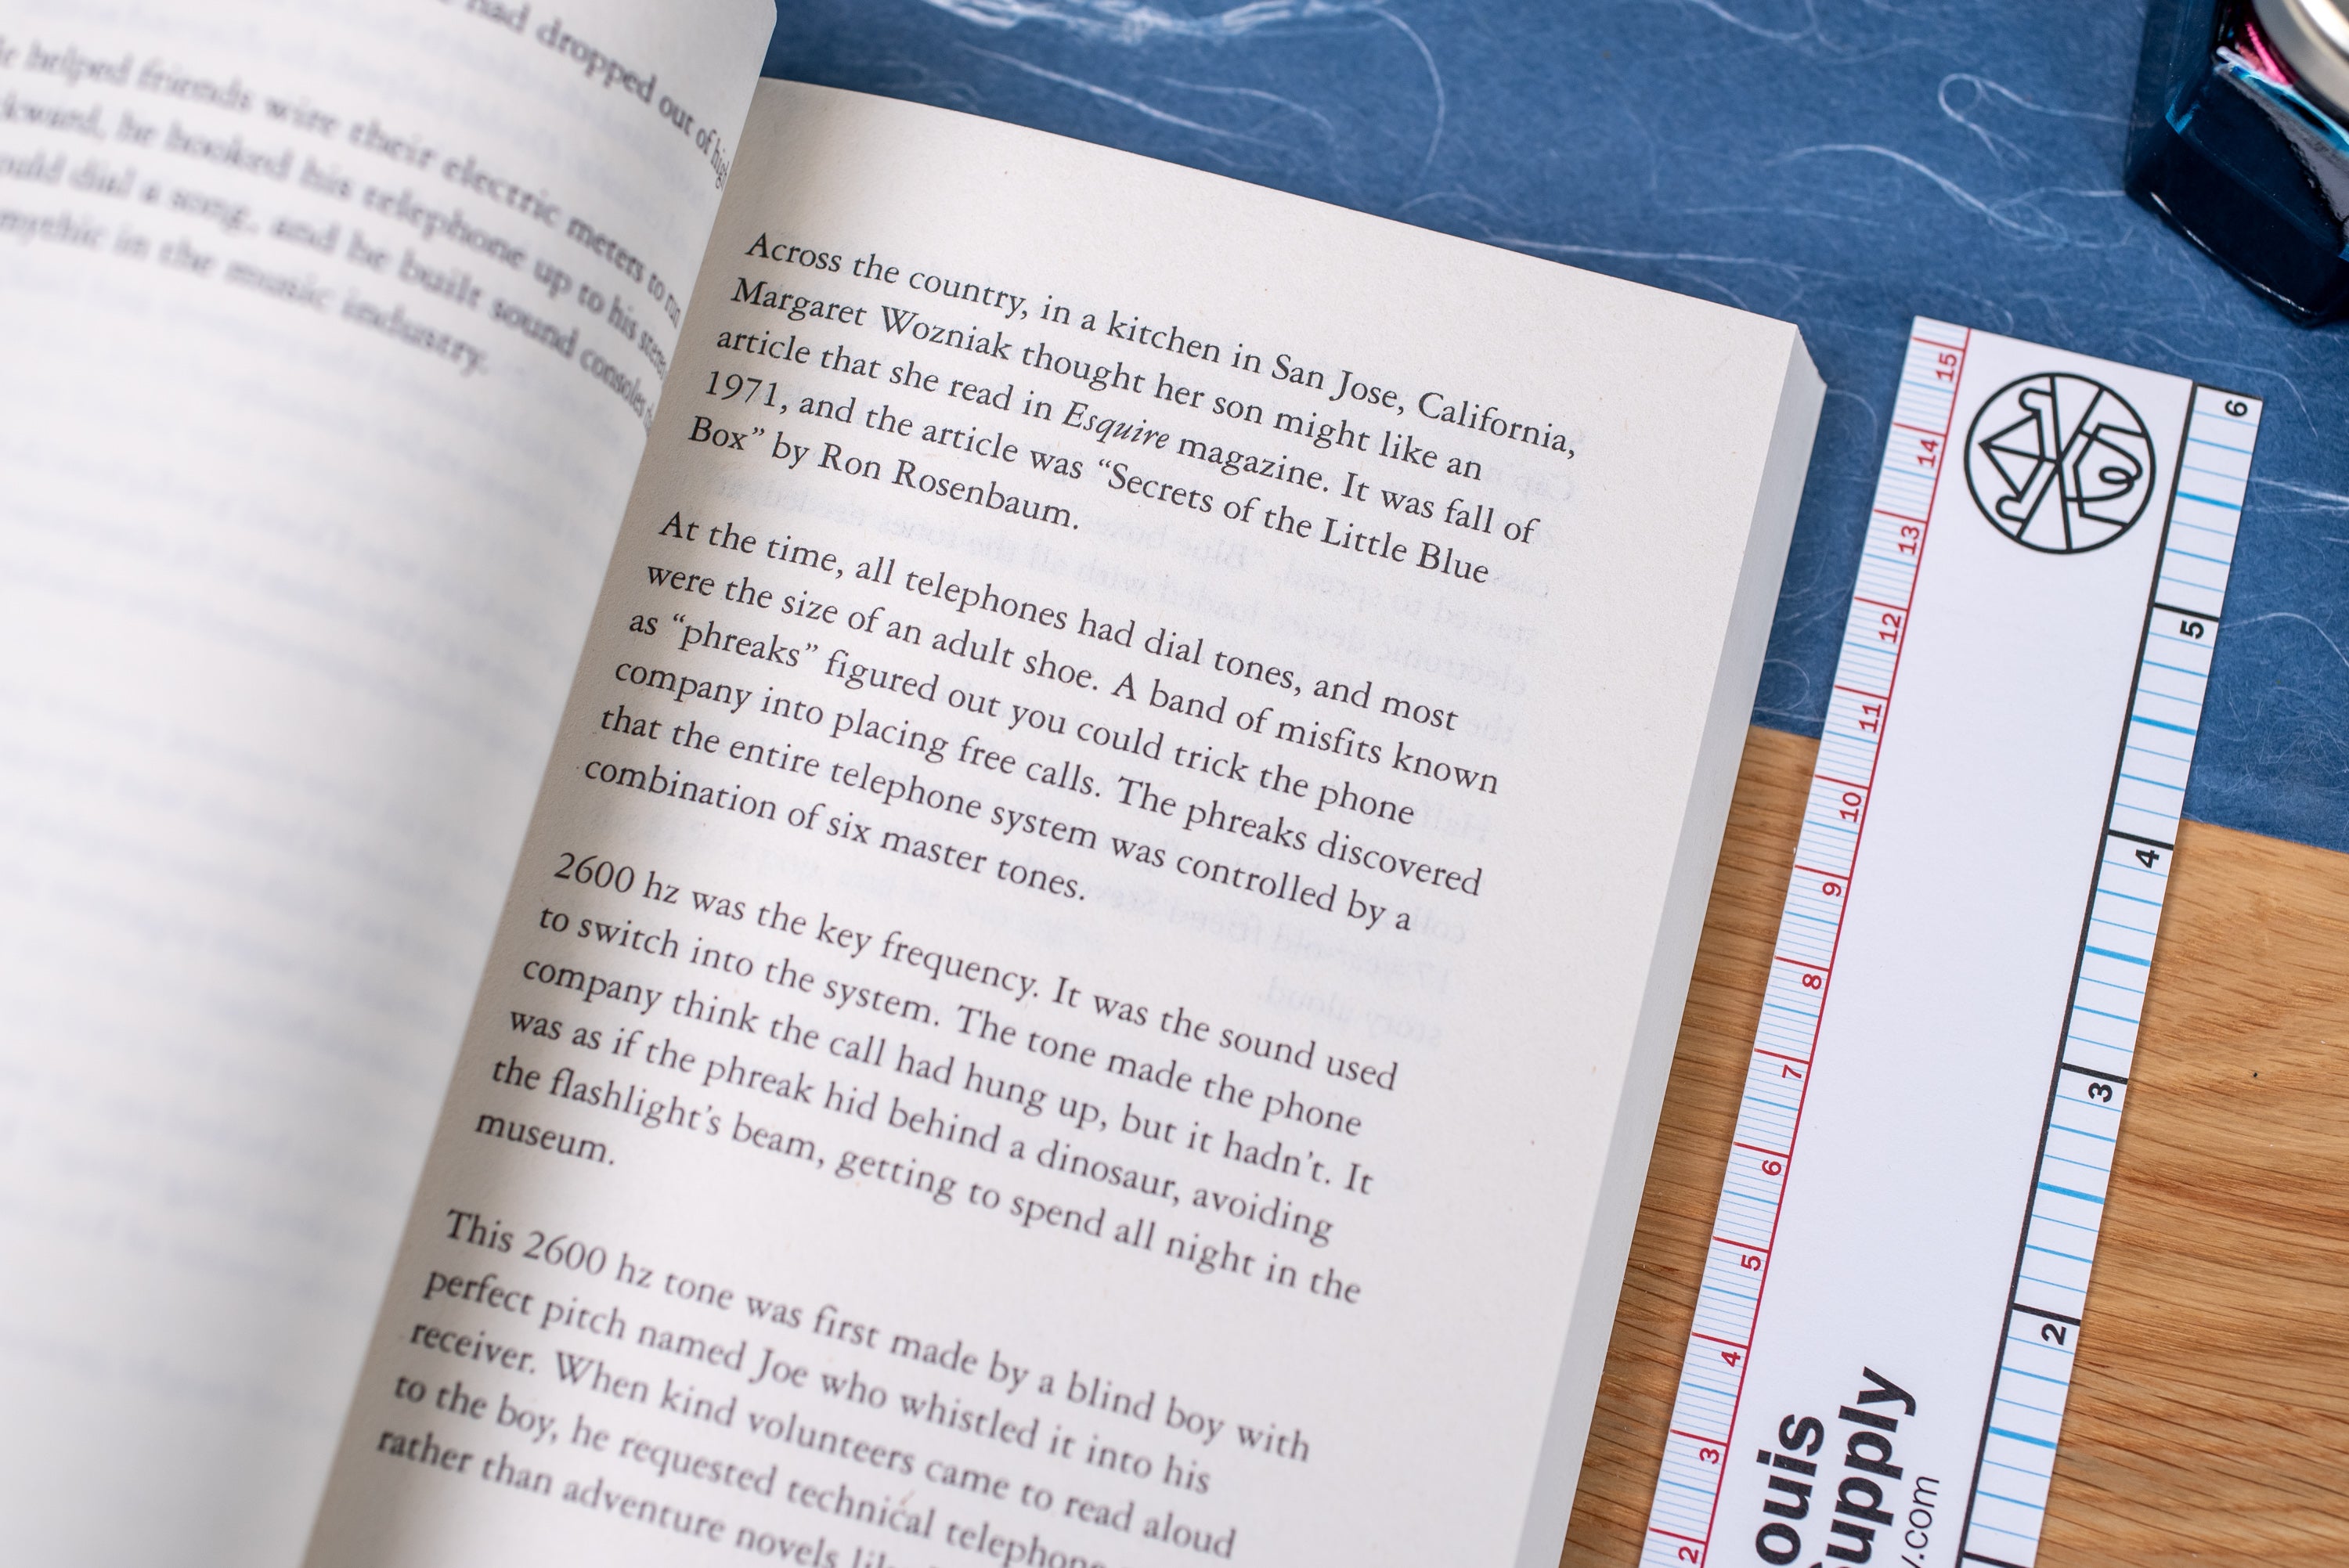 had dropped out of high
helped friends wire their electric meters to run
he hooked his telephone up to his stereo
dial a song, and he built sound consoles
mythic in the music industry.
Across the country, in a kitchen in San Jose, California,
Margaret Wozniak thought her son might like an
article that she read in Esquire magazine. It was fall of
1971, and the article was “Secrets of the Little Blue
Box” by Ron Rosenbaum.
At the time, all telephones had dial tones, and most
were the size of an adult shoe. A band of misfits known
as “phreaks” figured out you could trick the phone
company into placing free calls. The phreaks discovered
that the entire telephone system was controlled by a
combination of six master tones.
2600 hz was the key frequency. It was the sound used
to switch into the system. The tone made the phone
company think the call had hung up, but it hadn’t. It
was as if the phreak hid behind a dinosaur, avoiding
the flashlight’s beam, getting to spend all night in the
museum.
This 2600 hz tone was first made by a blind boy with
perfect pitch named Joe who whistled it into his
receiver. When kind volunteers came to read aloud
to the boy, he requested technical telephone
rather than adventure novels
15
14
13
12
11
10
9
8
7
6
5
4
3
2
6
5
4
3
2
ouis
upply
.com